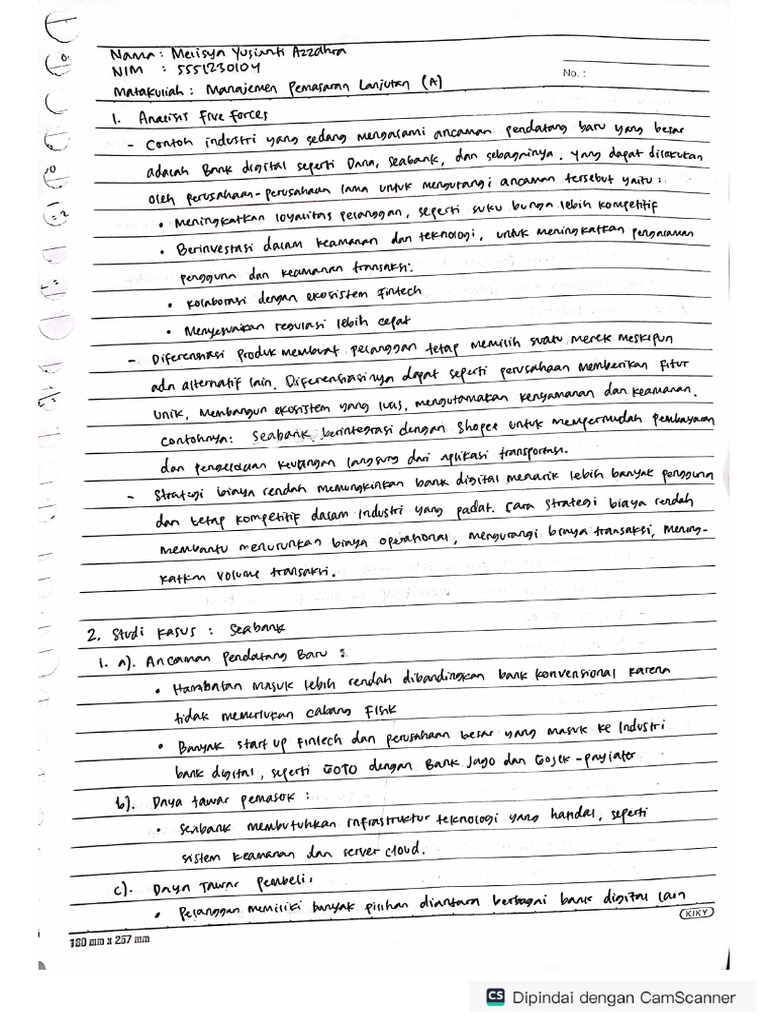 Nama : Merisya Yusianti Azzahra
NIM : 5551230104
No. :
Matakuliah : Manajemen Pemasaran Lanjutan (A)
1. Analisis Five Forces
- Contoh industri yang sedang mengalami ancaman pendatang baru yang besar
adalah Bank digital seperti Dana, Seabank, dan sebagainya. Yang dapat dilakukan
oleh perusahaan-perusahaan lama untuk mengurangi ancaman tersebut yaitu :
• Meningkatkan loyalitas pelanggan, seperti suku bunga lebih kompetitif
• Berinvestasi dalam keamanan dan teknologi, untuk meningkatkan pengalaman
pengguna dan keamanan transaksi.
• Kolaborasi dengan ekosistem Fintech
• Menyesuaikan regulasi lebih cepat
- Diferensiasi produk membuat pelanggan tetap memilih suatu merek meskipun
ada alternatif lain. Diferensiasinya dapat seperti perusahaan memberikan fitur
unik, membangun ekosistem yang luas, mengutamakan kenyamanan dan keamanan.
Contohnya : Seabank berintegrasi dengan Shopee untuk mempermudah pembayaran
dan pengelolaan keuangan langsung dari aplikasi transportasi.
- Strategi biaya rendah memungkinkan bank digital menarik lebih banyak pengguna
dan tetap kompetitif dalam industri yang padat. Cara strategi biaya rendah
membantu menurunkan biaya operasional, mengurangi biaya transaksi, mening-
katkan volume transaksi.
2. Studi Kasus : Seabank
1. a). Ancaman Pendatang Baru :
• Hambatan masuk lebih rendah dibandingkan bank konvensional karena
tidak memerlukan cabang fisik
• Banyak start up fintech dan perusahaan besar yang masuk ke industri
bank digital, seperti GOTO dengan Bank Jago dan Gojek-paylater
b). Daya tawar pemasok :
• Seabank membutuhkan infrastruktur teknologi yang handal, seperti
sistem keamanan dan server cloud.
c). Daya Tawar Pembeli :
• Pelanggan memiliki banyak pilihan diantara berbagai bank digital lain
KIKY
180 mm x 257 mm
CS Dipindai dengan CamScanner